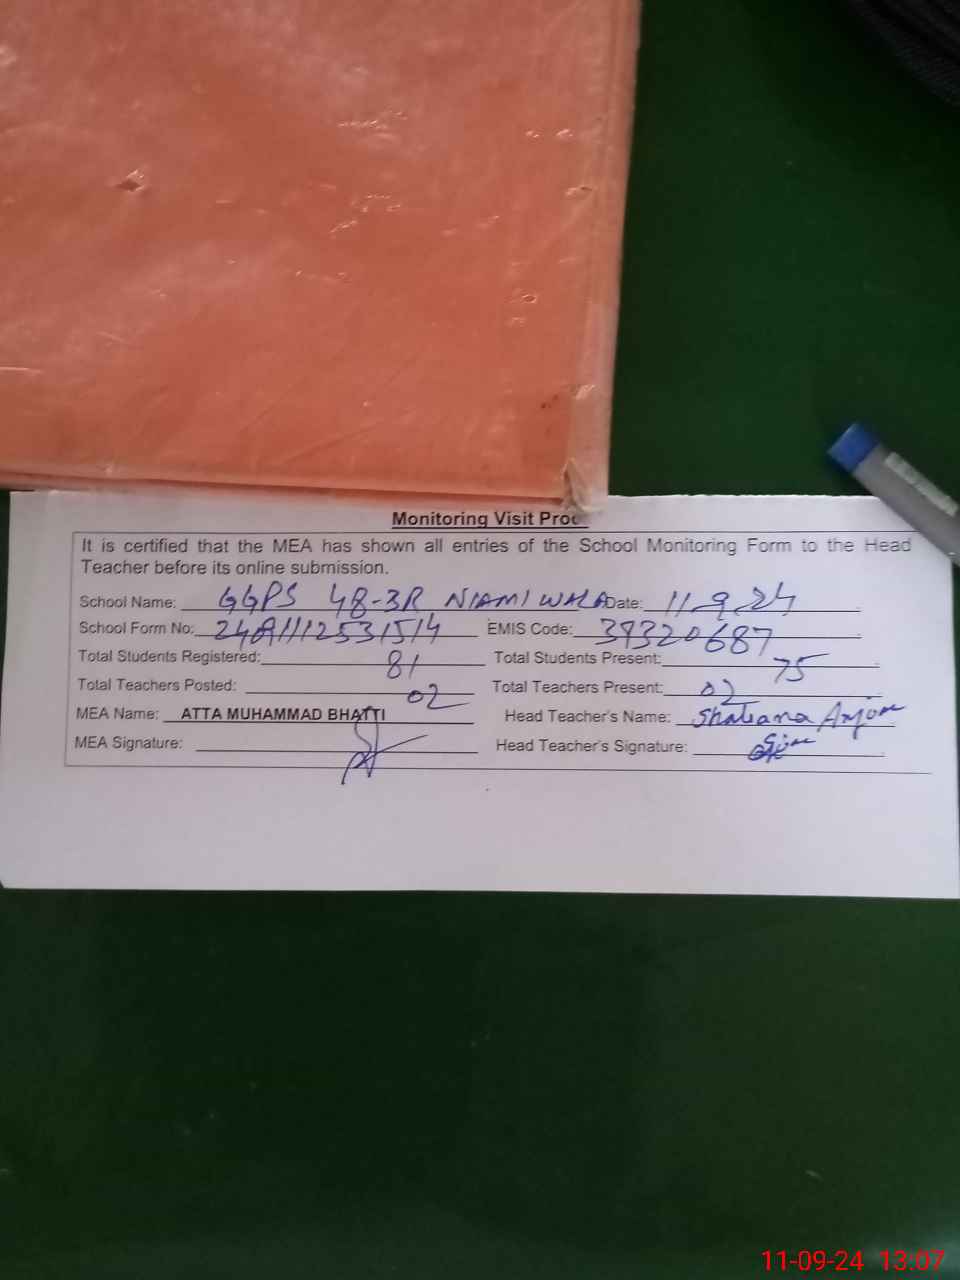 Monitoring Visit Proo
It is certified that the MEA has shown all entries of the School Monitoring Form to the Head
Teacher before its online submission.
School Name: GGPS 48-3R NIAMIWALA Date: 11.9.24
School Form No: 24A11112531514 EMIS Code: 39320687
Total Students Registered: 81 Total Students Present: 75
Total Teachers Posted: 02 Total Teachers Present: 02
MEA Name: ATTA MUHAMMAD BHATTI Head Teacher's Name:
MEA Signature: Head Teacher's Signature:
11-09-24 13:07